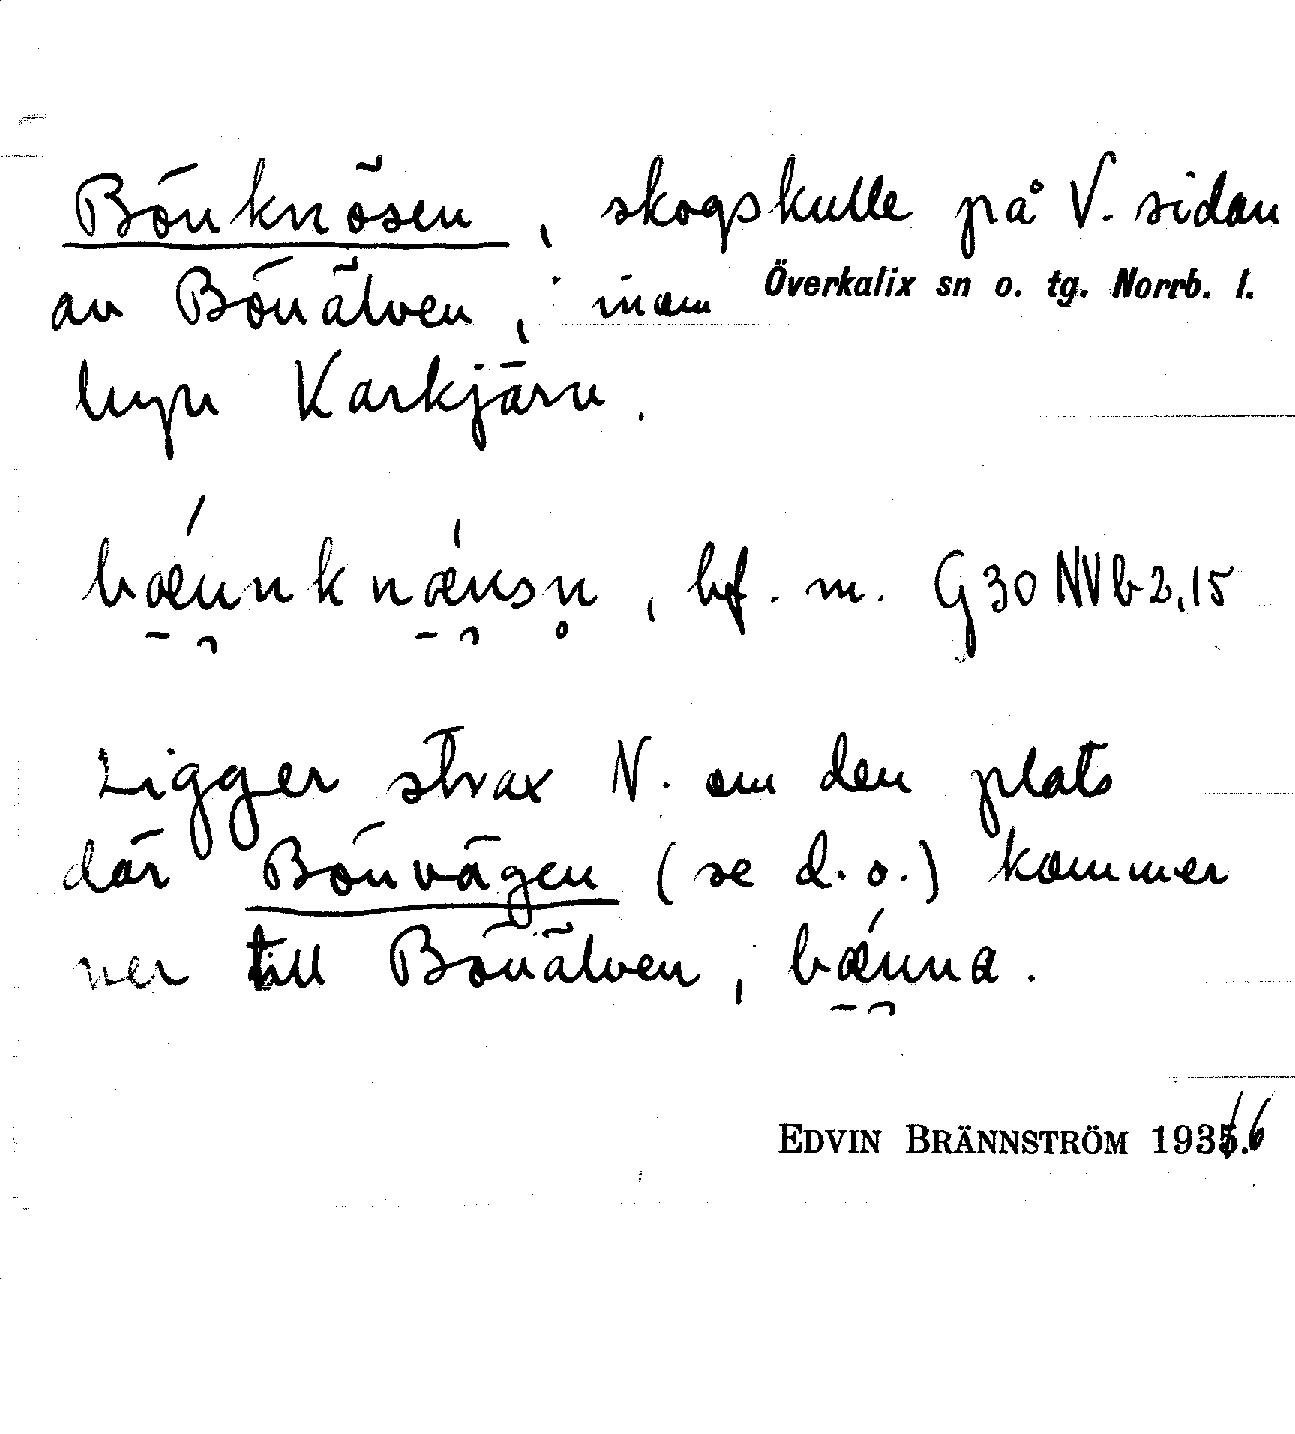 Bönknösen, skogskulle på V. sidan
av Bönälven, inom Överkalix sn o. tg. Norrb. l.
byn Karkjärv.
bæu̯nknæu̯sn̥, bf. m. G30NVb2,15
Ligger strax N. om den plats
där Bönvägen (se d. o.) kommer
ner till Bönälven, bæu̯na.
EDVIN BRÄNNSTRÖM 1936